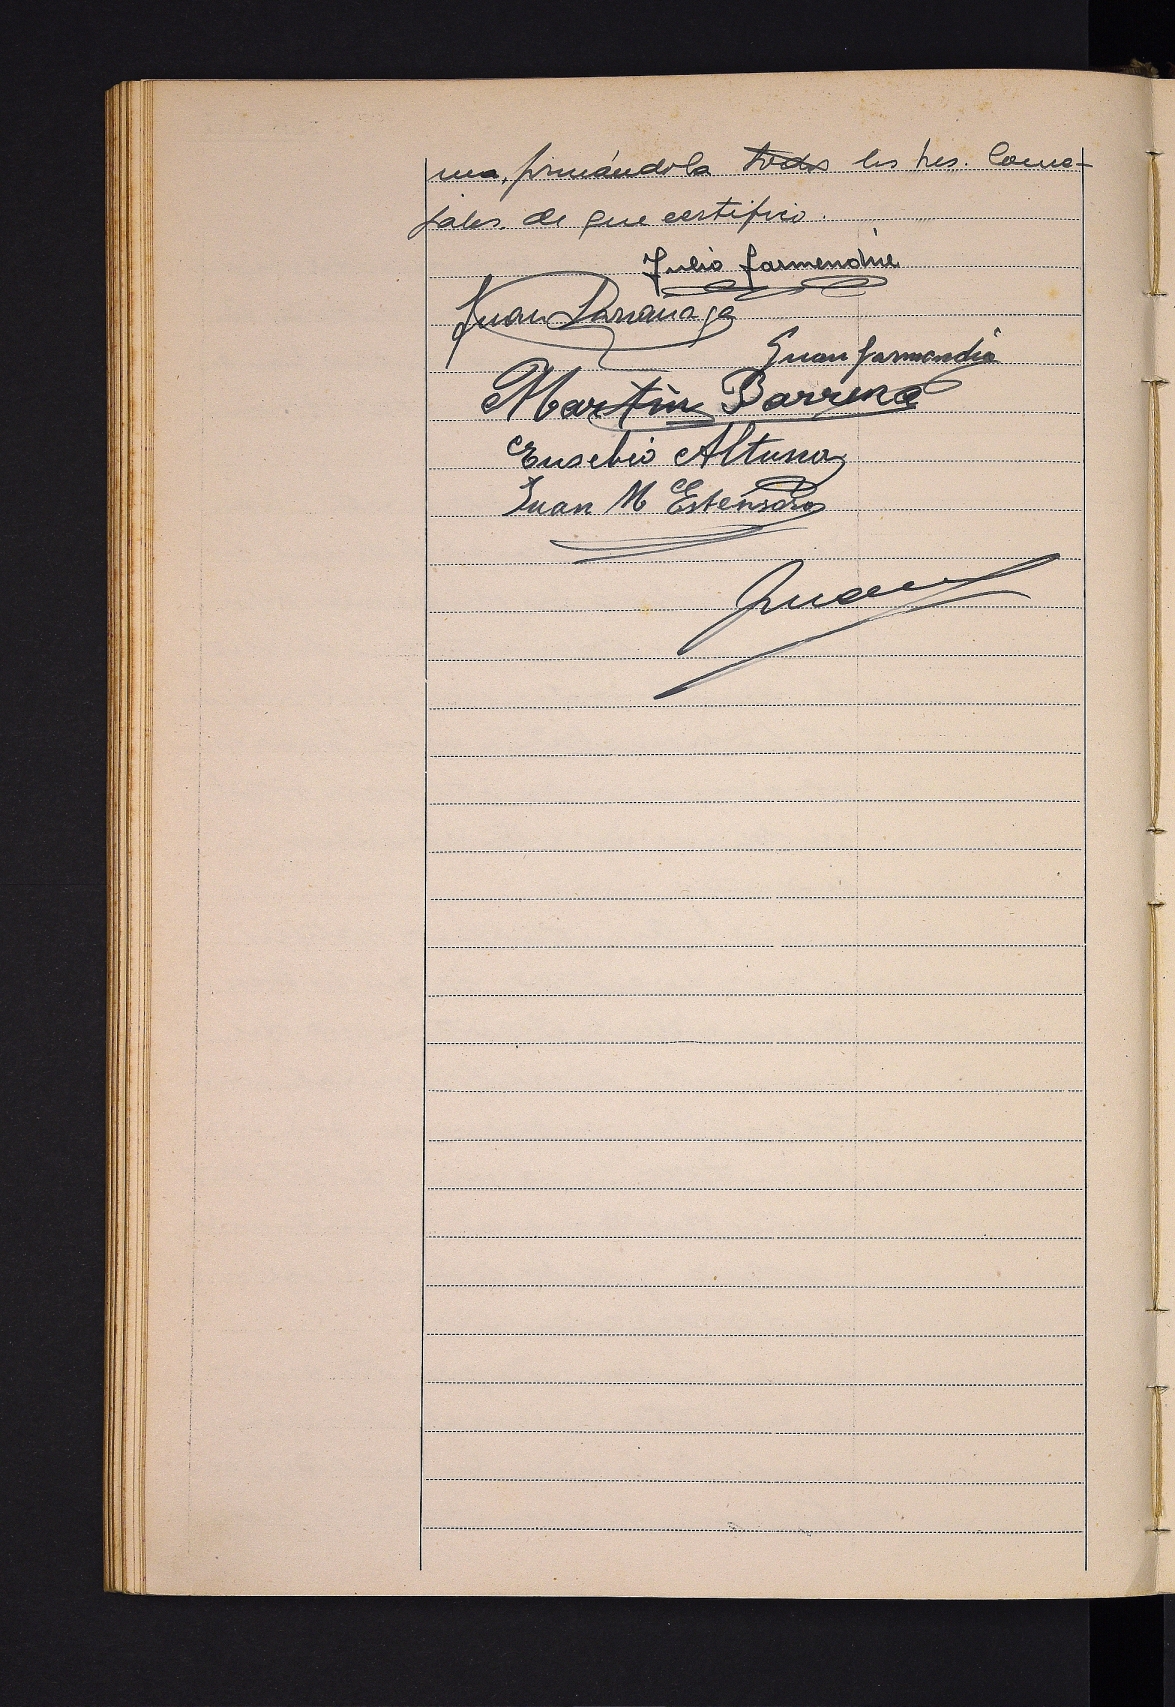 ma, firmándola todos los tres. Conce-
jales. de que certifico.
Julio Garmendia
Juan Larranaga
Juan Garmendia
Martin Barrena
Eusebio Altuna
Juan M Estensoro